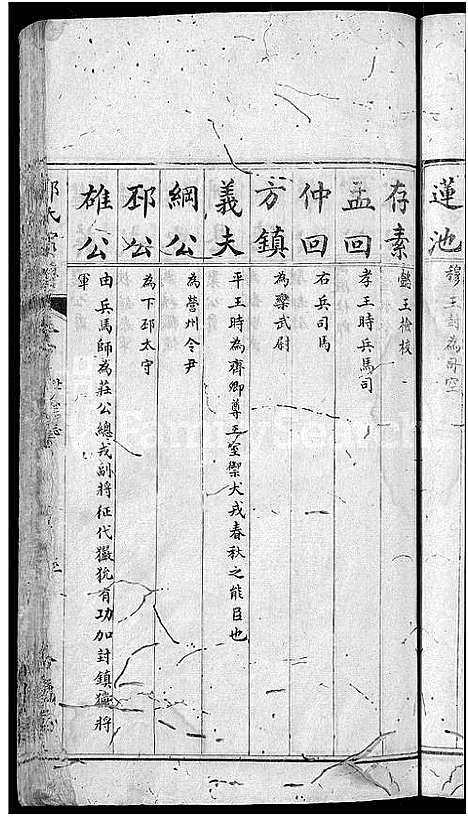 蓮池
穆王封為司空
存素
懿王檢校
孟回
孝王時兵馬司
仲回
右兵司馬
方鎮
為欒武尉
義夫
平王時為齊卿尊王室禦犬戎春秋之能臣也
綱公
為營州令尹
邳公
為下邳太守
雄公
由兵馬師為莊公總戎副將征伐玁狁有功加封鎮獮將
軍